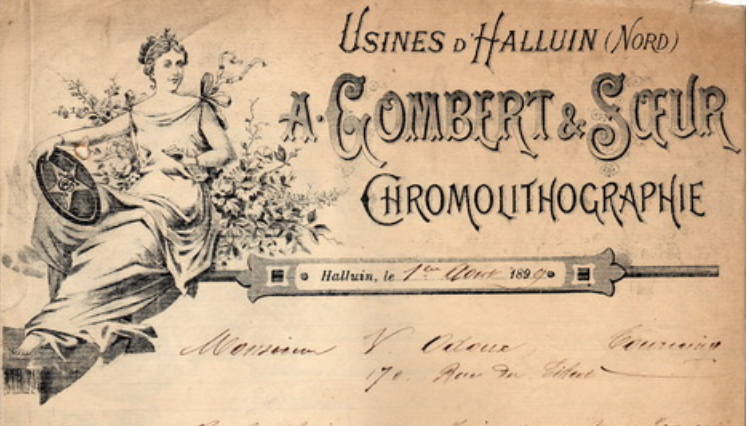 USINES D'HALLUIN (NORD)
A. GOMBERT & SŒUR
CHROMOLITHOGRAPHIE
Halluin, le 1er Août 1899
Monsieur V. Odoux, Tourcoing
170 Rue du Tilleul